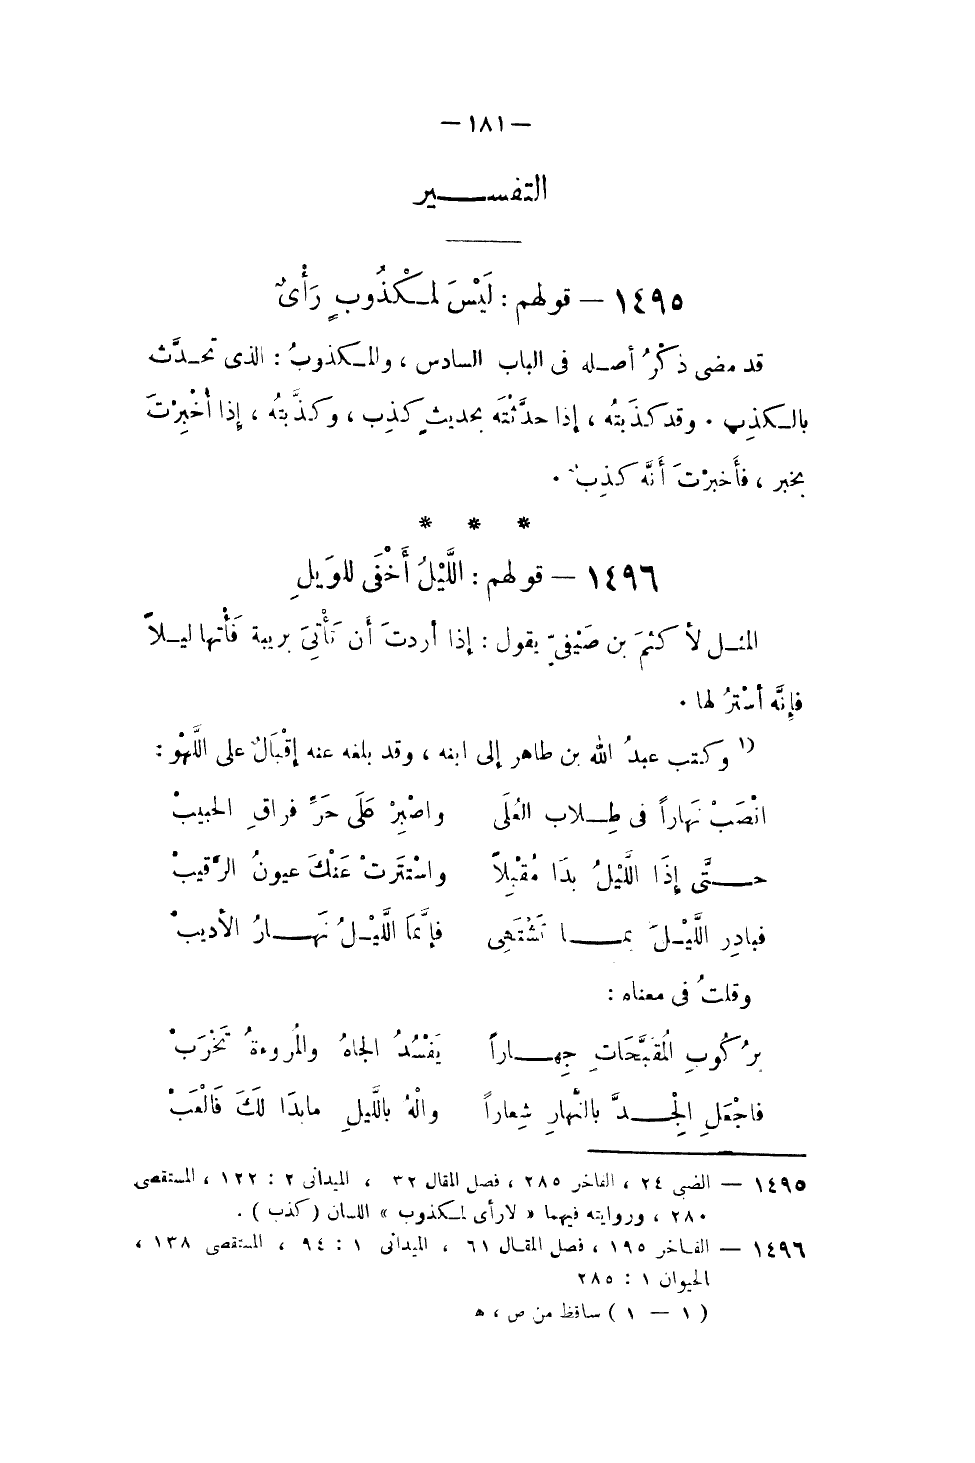 — ١٨١ —
التفسير
١٤٩٥ — قولهم : لَيْسَ لمكْذُوبٍ رَأْىٌ
قد مضى ذكْرُ أصله فى الباب السادس ، والمكذوبُ : الذى تحدَّث
بالكذِب . وقد كذَبتُه ، إذا حدَّثْتَه بحديثٍ كذِب ، وكذَّبتُه ، إذا أُخْبِرْتَ
بخبر ، فأَخبرْتَ أَنَّه كذِبٌ .
* * *
١٤٩٦ — قولهم : اللَّيْلُ أَخْفَى للوَيلِ
المثل لأكثمَ بن صَيْفىٍّ يقول : إذا أردتَ أن تَأْتِىَ بريبة فَأْتها ليلاً
فإِنَّه أسْترُ لها .
(١ وكتب عبدُ الله بن طاهر إلى ابنه ، وقد بلغه عنه إقْبَالٌ على اللَّهْو :
انْصَبْ نَهاراً فى طِلاب العُلَى واصْبِرْ عَلَى حَرِّ فراقِ الحبيبْ
حتَّى إذَا اللَّيْلُ بدَا مُقبْلاً واسْتترتْ عَنْكَ عيونُ الرَّقيبْ
فبادِر اللَّيْلَ بما تَشْتَهِى فإنَّما اللَّيْلُ نَهَارُ الأديبْ
وقلتُ فى معناه :
برُكُوبِ المُقَبَّحَاتِ جِهاراً يَفْسُدُ الجاهُ والمُروءةُ تَخْرَبْ
فاجْعَلِ الجِدَّ بالنَّهارِ شِعاراً والْهُ باللَّيلِ مابدَا لَكَ فَالْعَبْ
١٤٩٥ — الضبى ٢٤ ، الفاخر ٢٨٥ ، فصل المقال ٣٢ ، الميدانى ٢ : ١٢٢ ، المستقصى
٢٨٠ ، وروايته فيهما « لارأى لمكذوب » اللسان ( كذب ) .
١٤٩٦ — الفاخر ١٩٥ ، فصل المقال ٦١ ، الميدانى ١ : ٩٤ ، المستقصى ١٣٨ ،
الحيوان ١ : ٢٨٥
( ١ — ١ ) ساقظ من ص ، ه